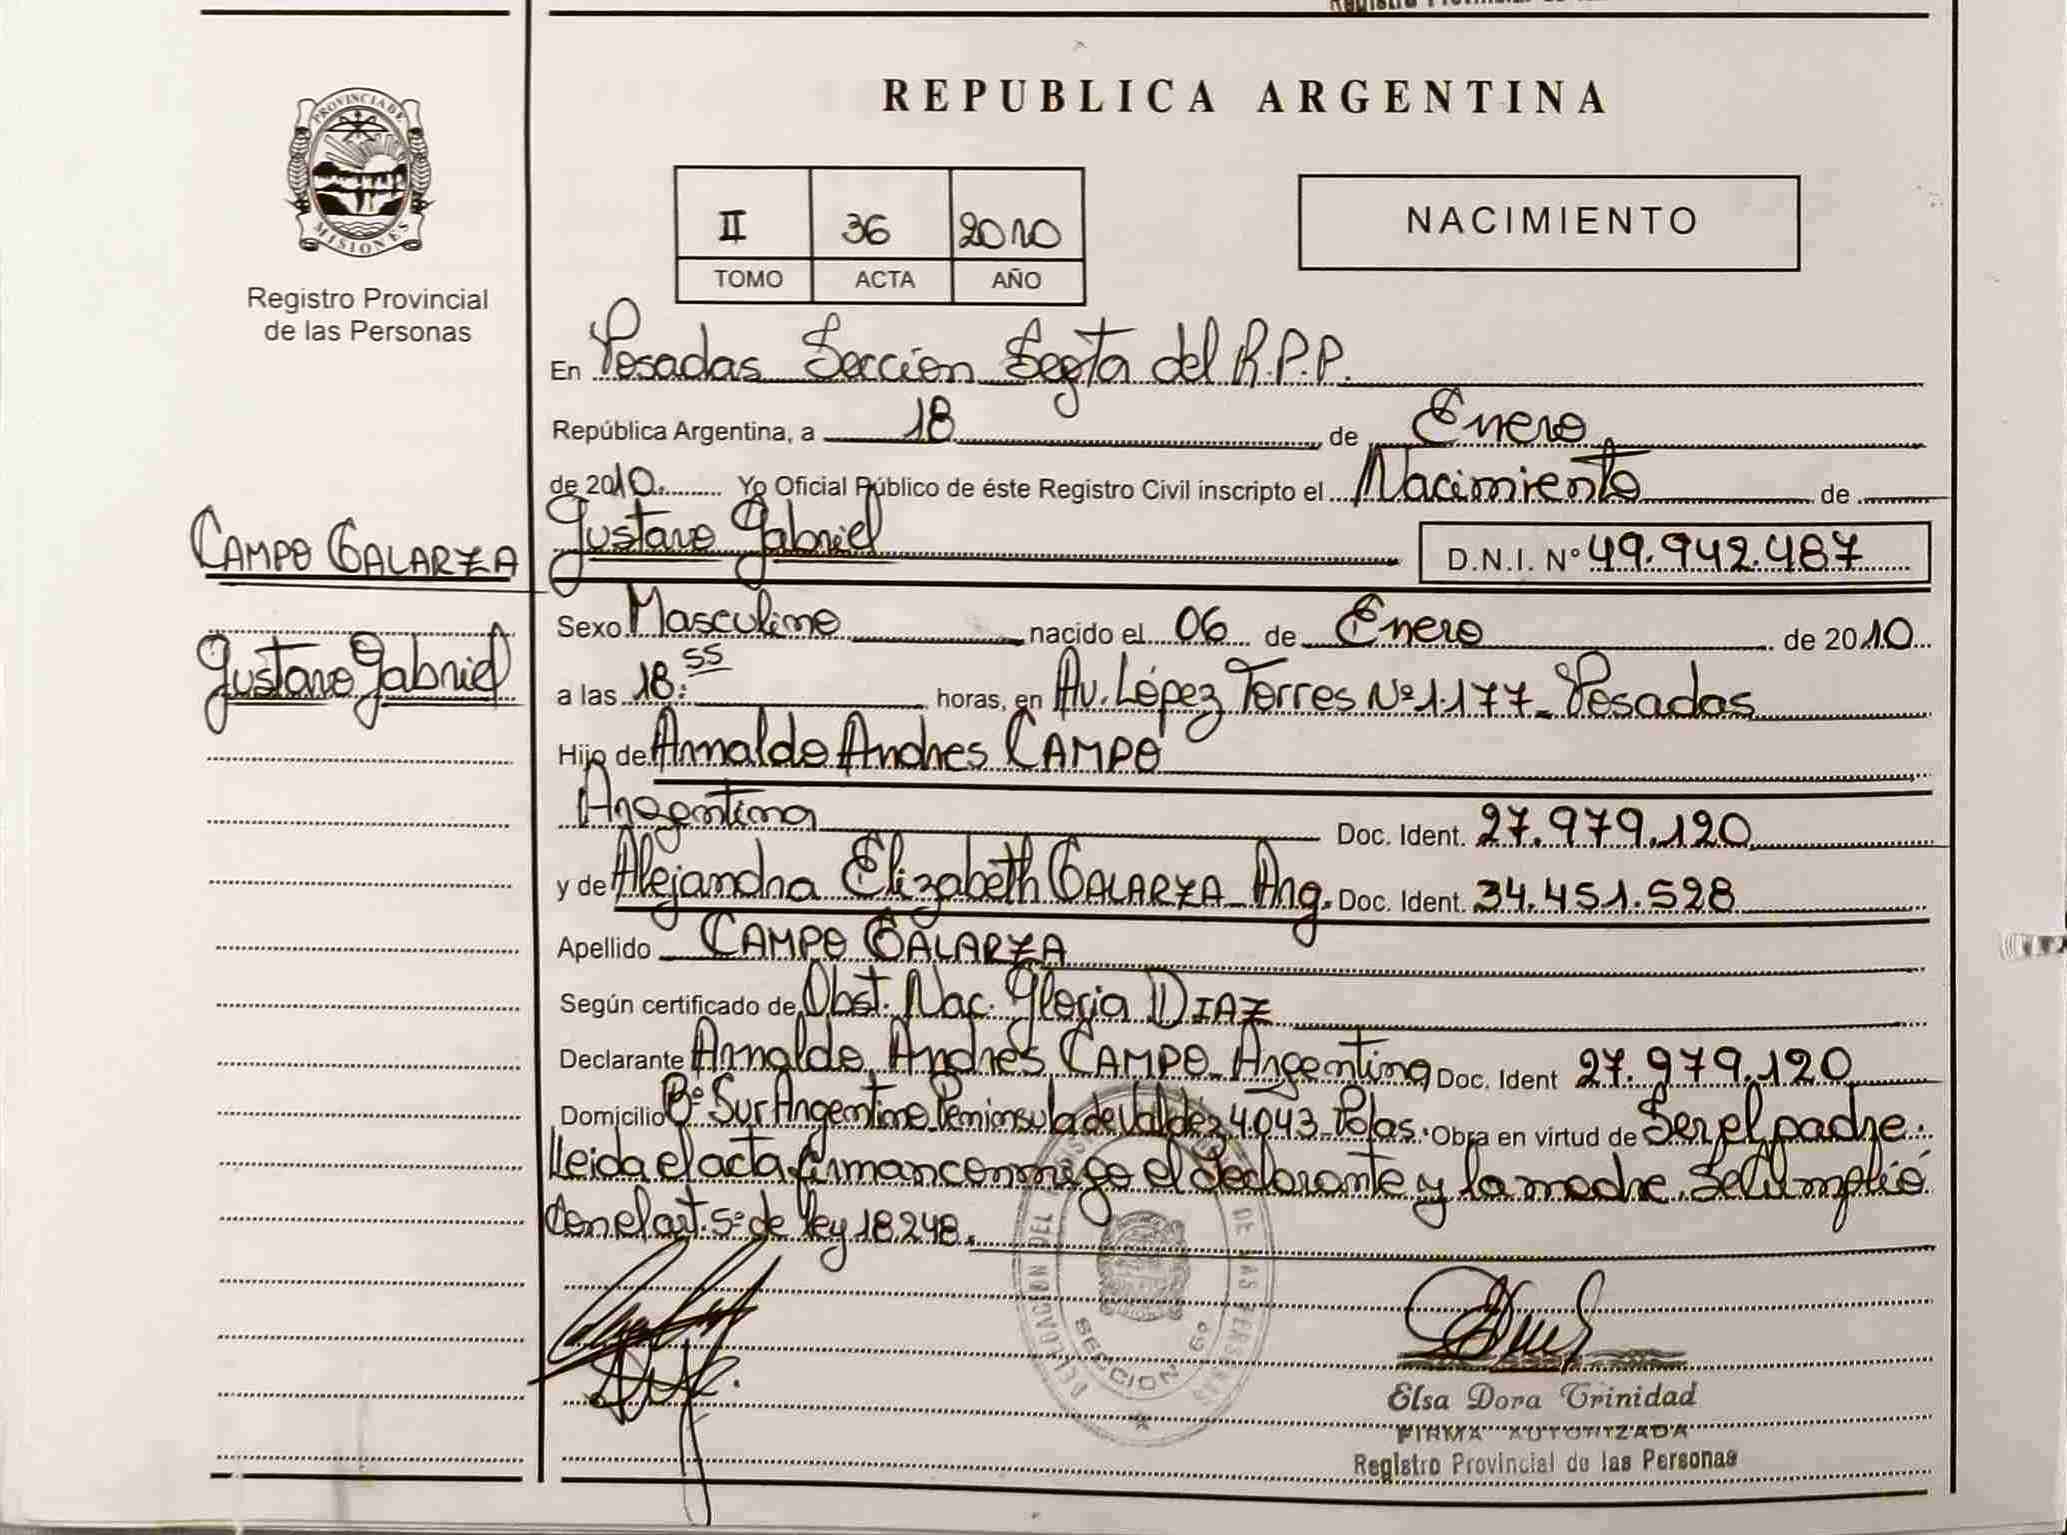 Registro Provincial de las
PROVINCIA DE
MISIONES
Registro Provincial
de las Personas
REPUBLICA ARGENTINA
II 36 2010
TOMO ACTA AÑO
NACIMIENTO
En Posadas Seccion Segta del R.P.P.
República Argentina, a 18 de Enero
de 2010. Yo Oficial Público de éste Registro Civil inscripto el Nacimiento de
CAMPO GALARZA
Gustavo Gabriel
Gustavo Gabriel D.N.I. Nº 49.942.487
Sexo Masculino nacido el 06 de Enero de 2010
a las 18:55 horas, en Av. López Torres Nº 1.177_ Posadas
Hijo de Arnaldo Andres CAMPO
Argentino Doc. Ident. 27.979.120
y de Alejandra Elizabeth GALARZA_ Arg. Doc. Ident. 34.451.528
Apellido CAMPO GALARZA
Según certificado de Obst. Nac. Gloria DIAZ
Declarante Arnaldo Andres CAMPO_ Argentino Doc. Ident 27.979.120
Domicilio Bº Sur Argentino Peninsula de Valdéz 4.043_ Pdas. Obra en virtud de Ser el padre.
Leida el acta firman conmigo el declarante y la madre. Se Cumplió
Con el art. 5º de ley 18.248.
DELEGACION DEL DE LAS PERSONAS
SECCION 6º
Elsa Dora Trinidad
FIRMA AUTORIZADA
Registro Provincial de las Personas